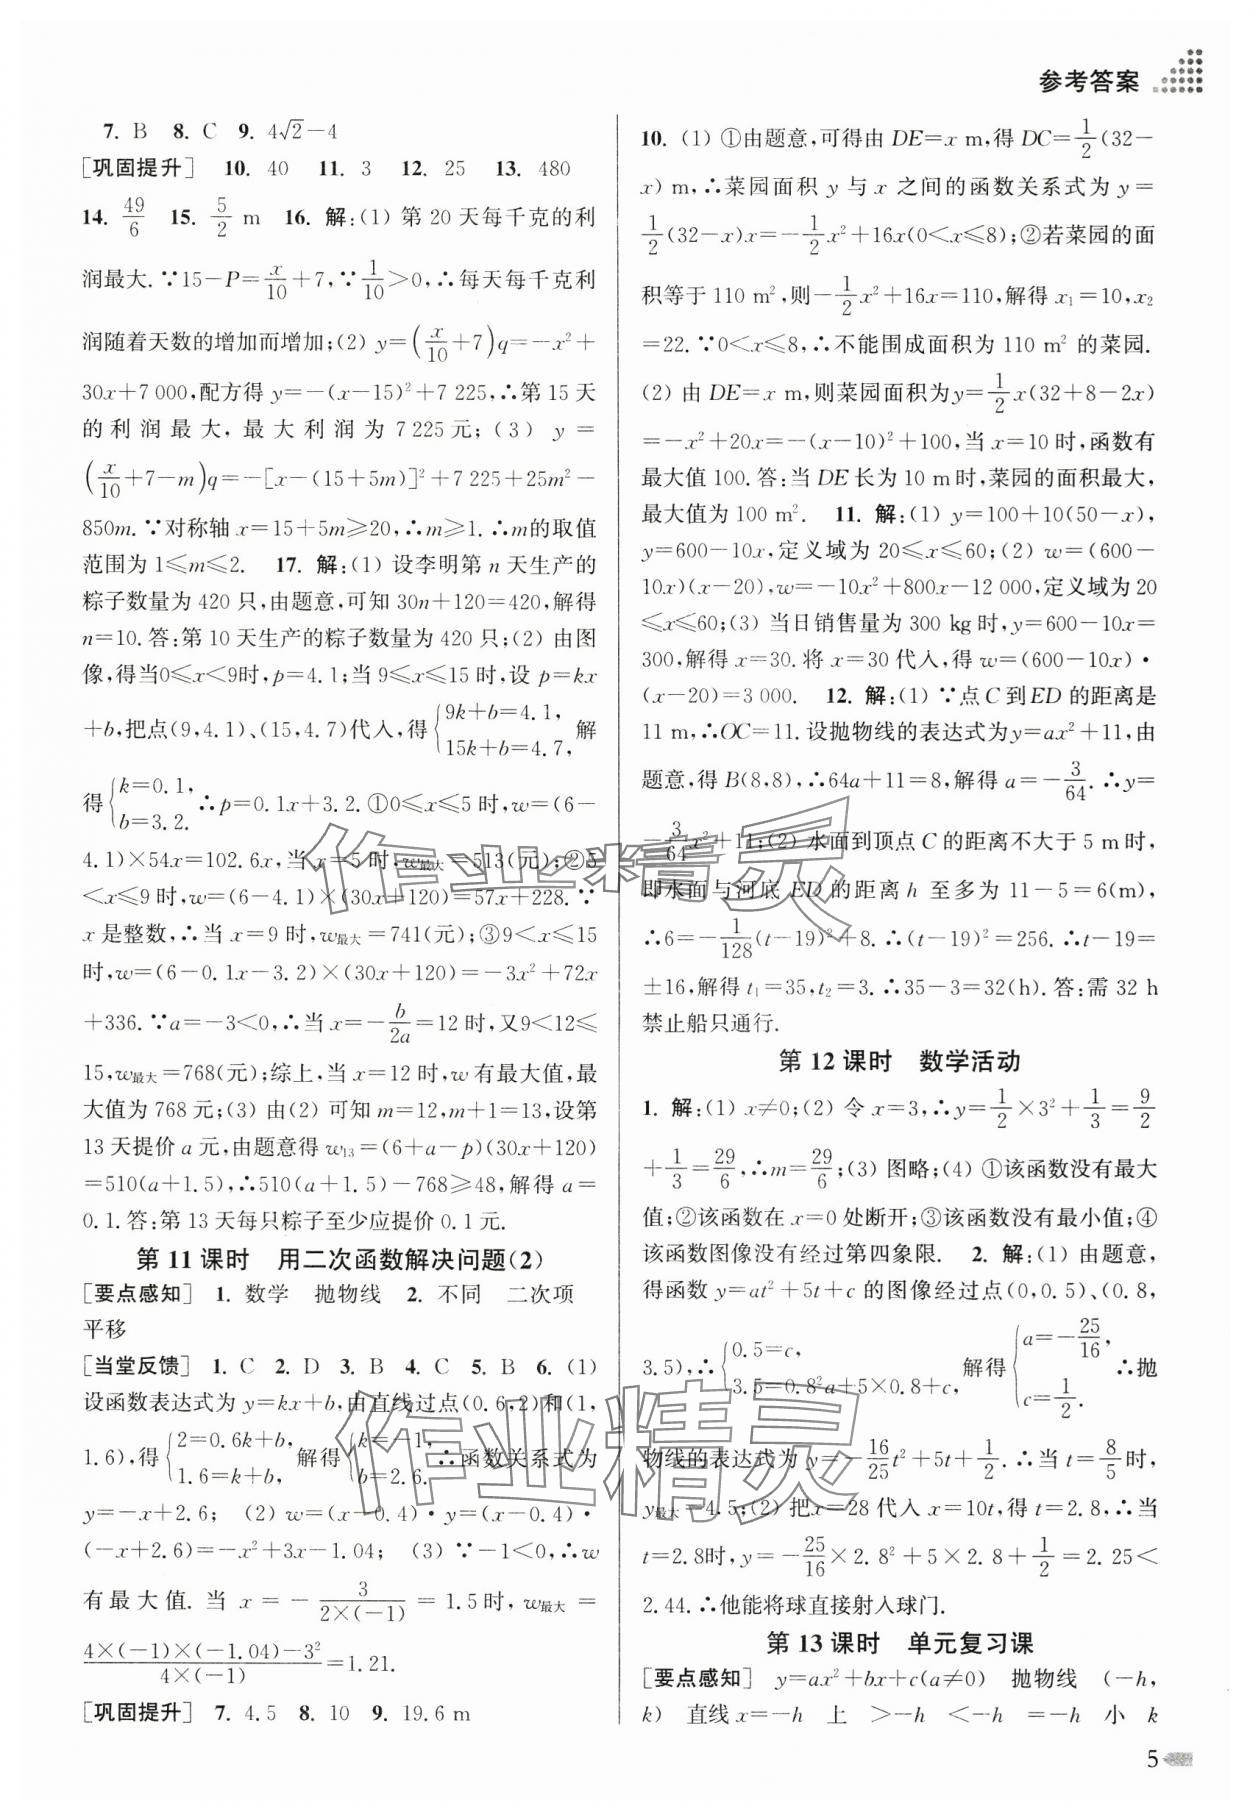 参考答案
7. B 8. C 9. 4√2－4
[巩固提升] 10. 40 11. 3 12. 25 13. 480
14. 49/6 15. 5/2 m 16. 解:(1) 第 20 天每千克的利
润最大. ∵15－P＝x/10＋7,∵1/10＞0,∴每天每千克利
润随着天数的增加而增加;(2) y＝(x/10＋7)q＝－x²＋
30x＋7 000,配方得 y＝－(x－15)²＋7 225,∴第 15 天
的利润最大, 最大利润为 7 225 元; (3) y＝
(x/10＋7－m)q＝－[x－(15＋5m)]²＋7 225＋25m²－
850m. ∵对称轴 x＝15＋5m≥20,∴m≥1. ∴m的取值
范围为 1≤m≤2. 17. 解:(1) 设李明第 n 天生产的
粽子数量为 420 只,由题意,可知 30n＋120＝420,解得
n＝10. 答:第 10 天生产的粽子数量为 420 只;(2) 由图
像,得当0≤x＜9时,p＝4.1;当 9≤x≤15 时,设 p＝kx
＋b,把点(9,4.1)、(15,4.7)代入,得{9k＋b＝4.1, 15k＋b＝4.7, 解
得{k＝0.1, b＝3.2. ∴p＝0.1x＋3.2. ①0≤x≤5 时,w＝(6－
4.1)×54x＝102.6x,当 x＝5 时,w最大＝513(元);②5
＜x≤9 时,w＝(6－4.1)×(30x＋120)＝57x＋228. ∵
x 是整数,∴当 x＝9 时,w最大＝741(元);③9＜x≤15
时,w＝(6－0.1x－3.2)×(30x＋120)＝－3x²＋72x
＋336. ∵a＝－3＜0,∴当 x＝－b/2a＝12 时,又9＜12≤
15,w最大＝768(元);综上,当 x＝12 时,w 有最大值,最
大值为 768 元;(3) 由(2) 可知 m＝12,m＋1＝13,设第
13 天提价 a 元,由题意得 w₁₃＝(6＋a－p)(30x＋120)
＝510(a＋1.5),∴510(a＋1.5)－768≥48,解得 a＝
0.1. 答:第 13 天每只粽子至少应提价 0.1 元.
第 11 课时 用二次函数解决问题(2)
[要点感知] 1. 数学 抛物线 2. 不同 二次项
平移
[当堂反馈] 1. C 2. D 3. B 4. C 5. B 6. (1)
设函数表达式为 y＝kx＋b,由直线过点(0.6,2)和(1,
1.6),得{2＝0.6k＋b, 1.6＝k＋b, 解得{k＝－1, b＝2.6. ∴函数关系式为
y＝－x＋2.6; (2) w＝(x－0.4)·y＝(x－0.4)·
(－x＋2.6)＝－x²＋3x－1.04; (3) ∵－1＜0,∴w
有最大值. 当 x＝－3/(2×(－1))＝1.5时,w最大＝
(4×(－1)×(－1.04)－3²)/(4×(－1))＝1.21.
[巩固提升] 7. 4.5 8. 10 9. 19.6 m
10. (1) ①由题意,可得由 DE＝x m,得 DC＝1/2(32－
x) m,∴菜园面积 y 与 x 之间的函数关系式为 y＝
1/2(32－x)x＝－1/2x²＋16x(0＜x≤8);②若菜园的面
积等于 110 m²,则－1/2x²＋16x＝110,解得 x₁＝10,x₂
＝22. ∵0＜x≤8,∴不能围成面积为 110 m² 的菜园.
(2) 由 DE＝x m,则菜园面积为y＝1/2x(32＋8－2x)
＝－x²＋20x＝－(x－10)²＋100,当 x＝10 时,函数有
最大值 100. 答:当 DE 长为 10 m时,菜园的面积最大,
最大值为 100 m². 11. 解:(1) y＝100＋10(50－x),
y＝600－10x,定义域为 20≤x≤60;(2) w＝(600－
10x)(x－20),w＝－10x²＋800x－12 000,定义域为 20
≤x≤60;(3) 当日销售量为 300 kg 时,y＝600－10x＝
300,解得 x＝30. 将 x＝30 代入,得 w＝(600－10x)·
(x－20)＝3 000. 12. 解:(1) ∵点 C 到ED 的距离是
11 m,∴OC＝11. 设抛物线的表达式为y＝ax²＋11,由
题意,得 B(8,8),∴64a＋11＝8,解得 a＝－3/64. ∴y＝
－3/64x²＋11;(2) 水面到顶点 C 的距离不大于 5 m时,
即水面与河底 ED 的距离 h 至多为 11－5＝6(m),
∴6＝－1/128(t－19)²＋8. ∴(t－19)²＝256. ∴t－19＝
±16,解得 t₁＝35,t₂＝3. ∴35－3＝32(h). 答:需 32 h
禁止船只通行.
第 12 课时 数学活动
1. 解:(1) x≠0;(2) 令 x＝3,∴y＝1/2×3²＋1/3＝9/2
＋1/3＝29/6,∴m＝29/6;(3) 图略;(4) ①该函数没有最大
值;②该函数在 x＝0 处断开;③该函数没有最小值;④
该函数图像没有经过第四象限. 2. 解:(1) 由题意,
得函数 y＝at²＋5t＋c 的图像经过点(0,0.5)、(0.8,
3.5),∴{0.5＝c, 3.5＝0.8²a＋5×0.8＋c, 解得{a＝－25/16, c＝1/2. ∴抛
物线的表达式为 y＝－16/25t²＋5t＋1/2. ∴当 t＝8/5时,
y最大＝4.5;(2) 把x＝28代入 x＝10t,得 t＝2.8,∴当
t＝2.8时,y＝－25/16×2.8²＋5×2.8＋1/2＝2.25＜
2.44. ∴他能将球直接射入球门.
第 13 课时 单元复习课
[要点感知] y＝ax²＋bx＋c(a≠0) 抛物线 (－h,
k) 直线 x＝－h 上 ＞－h ＜－h ＝－h 小 k
5
作业精灵
作业精灵